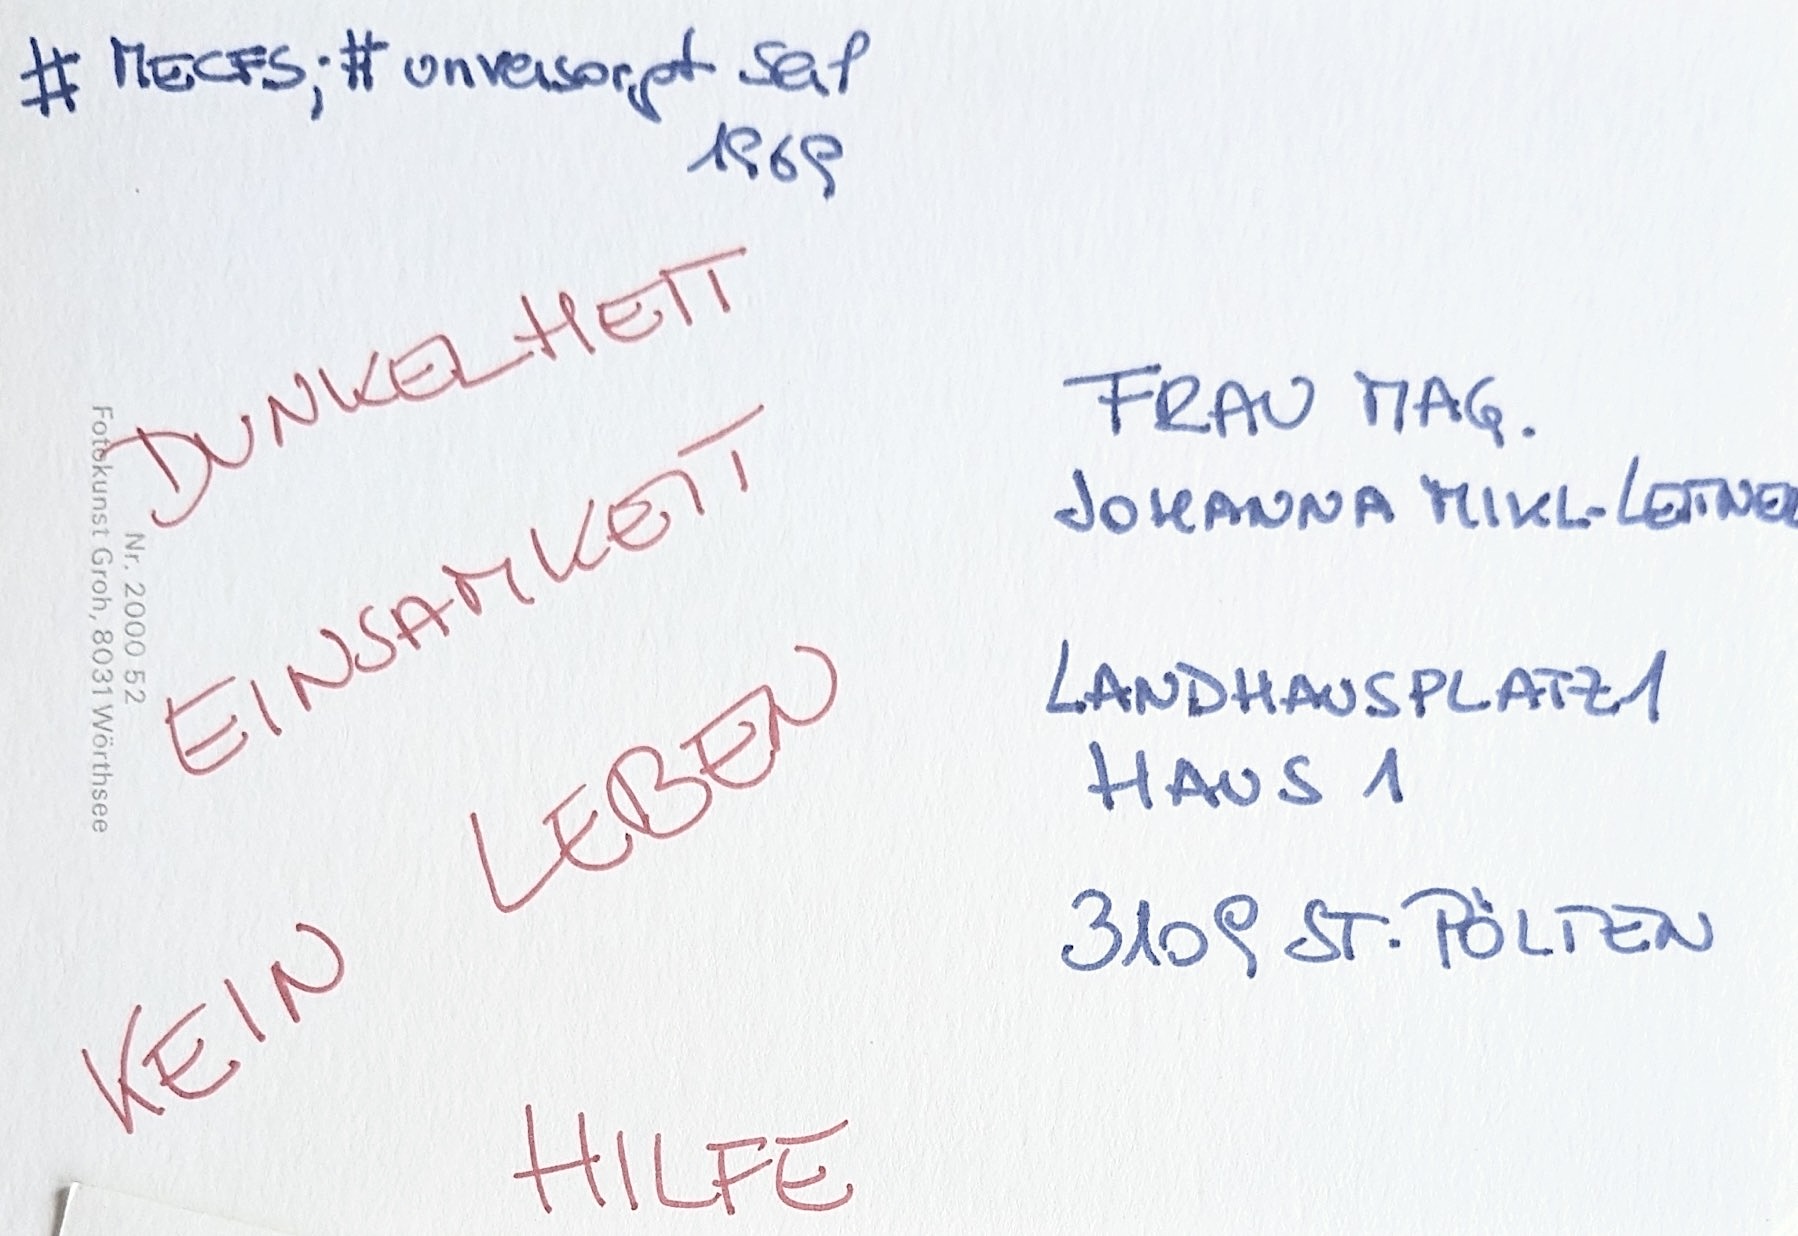 # MECFS; # unversorgt seit
1969
DUNKELHEIT
EINSAMKEIT
KEIN LEBEN
HILFE
Nr. 2000 52
Fotokunst Groh, 8031 Wörthsee
FRAU MAG.
JOHANNA MIKL-LEITNER
LANDHAUSPLATZ 1
HAUS 1
3109 ST. PÖLTEN